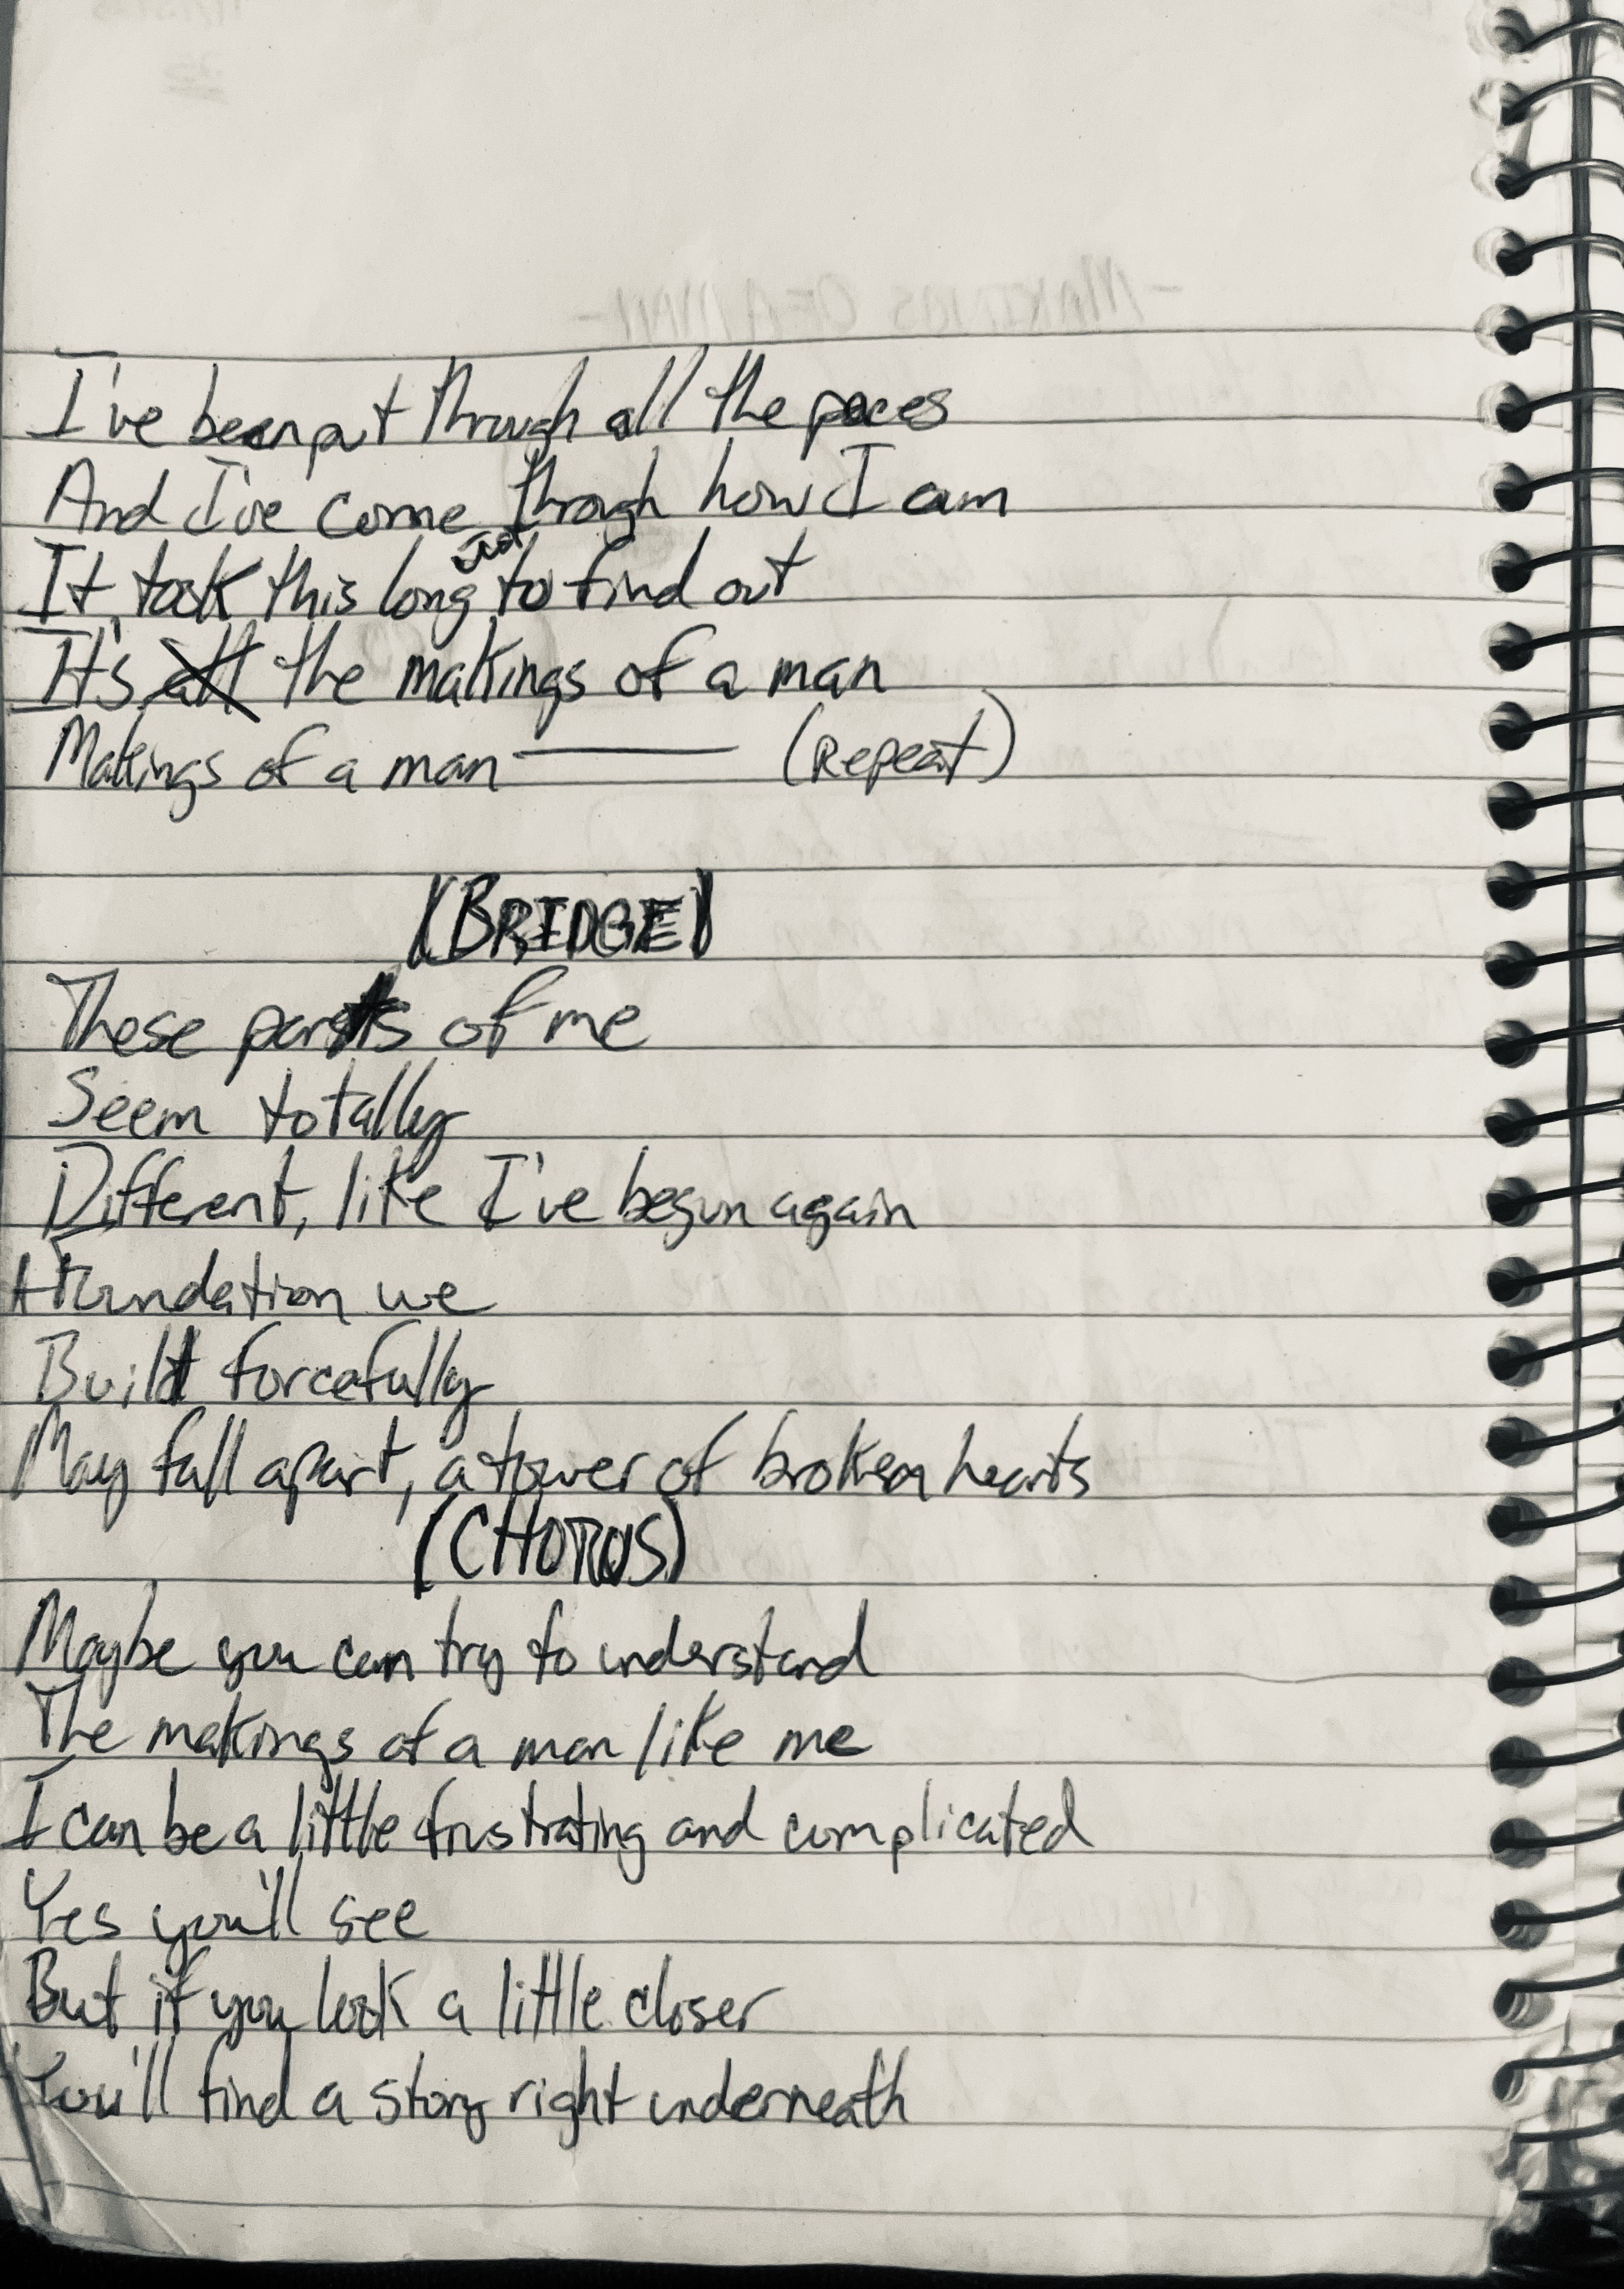 -MAKINGS OF A MAN-
I've been put through all the paces
And I've come through how I am
It took this long just to find out
It's all the makings of a man
Makings of a man —— (Repeat)
(BRIDGE)
These parts of me
Seem totally
Different, like I've begun again
A foundation we
Built forcefully
May fall apart, a tower of broken hearts
(CHORUS)
Maybe you can try to understand
The makings of a man like me
I can be a little frustrating and complicated
Yes you'll see
But if you look a little closer
You'll find a story right underneath